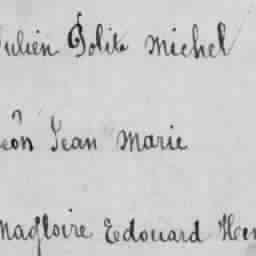 Julien Polite Michel
Léon Jean Marie
Magloire Edouard Hen